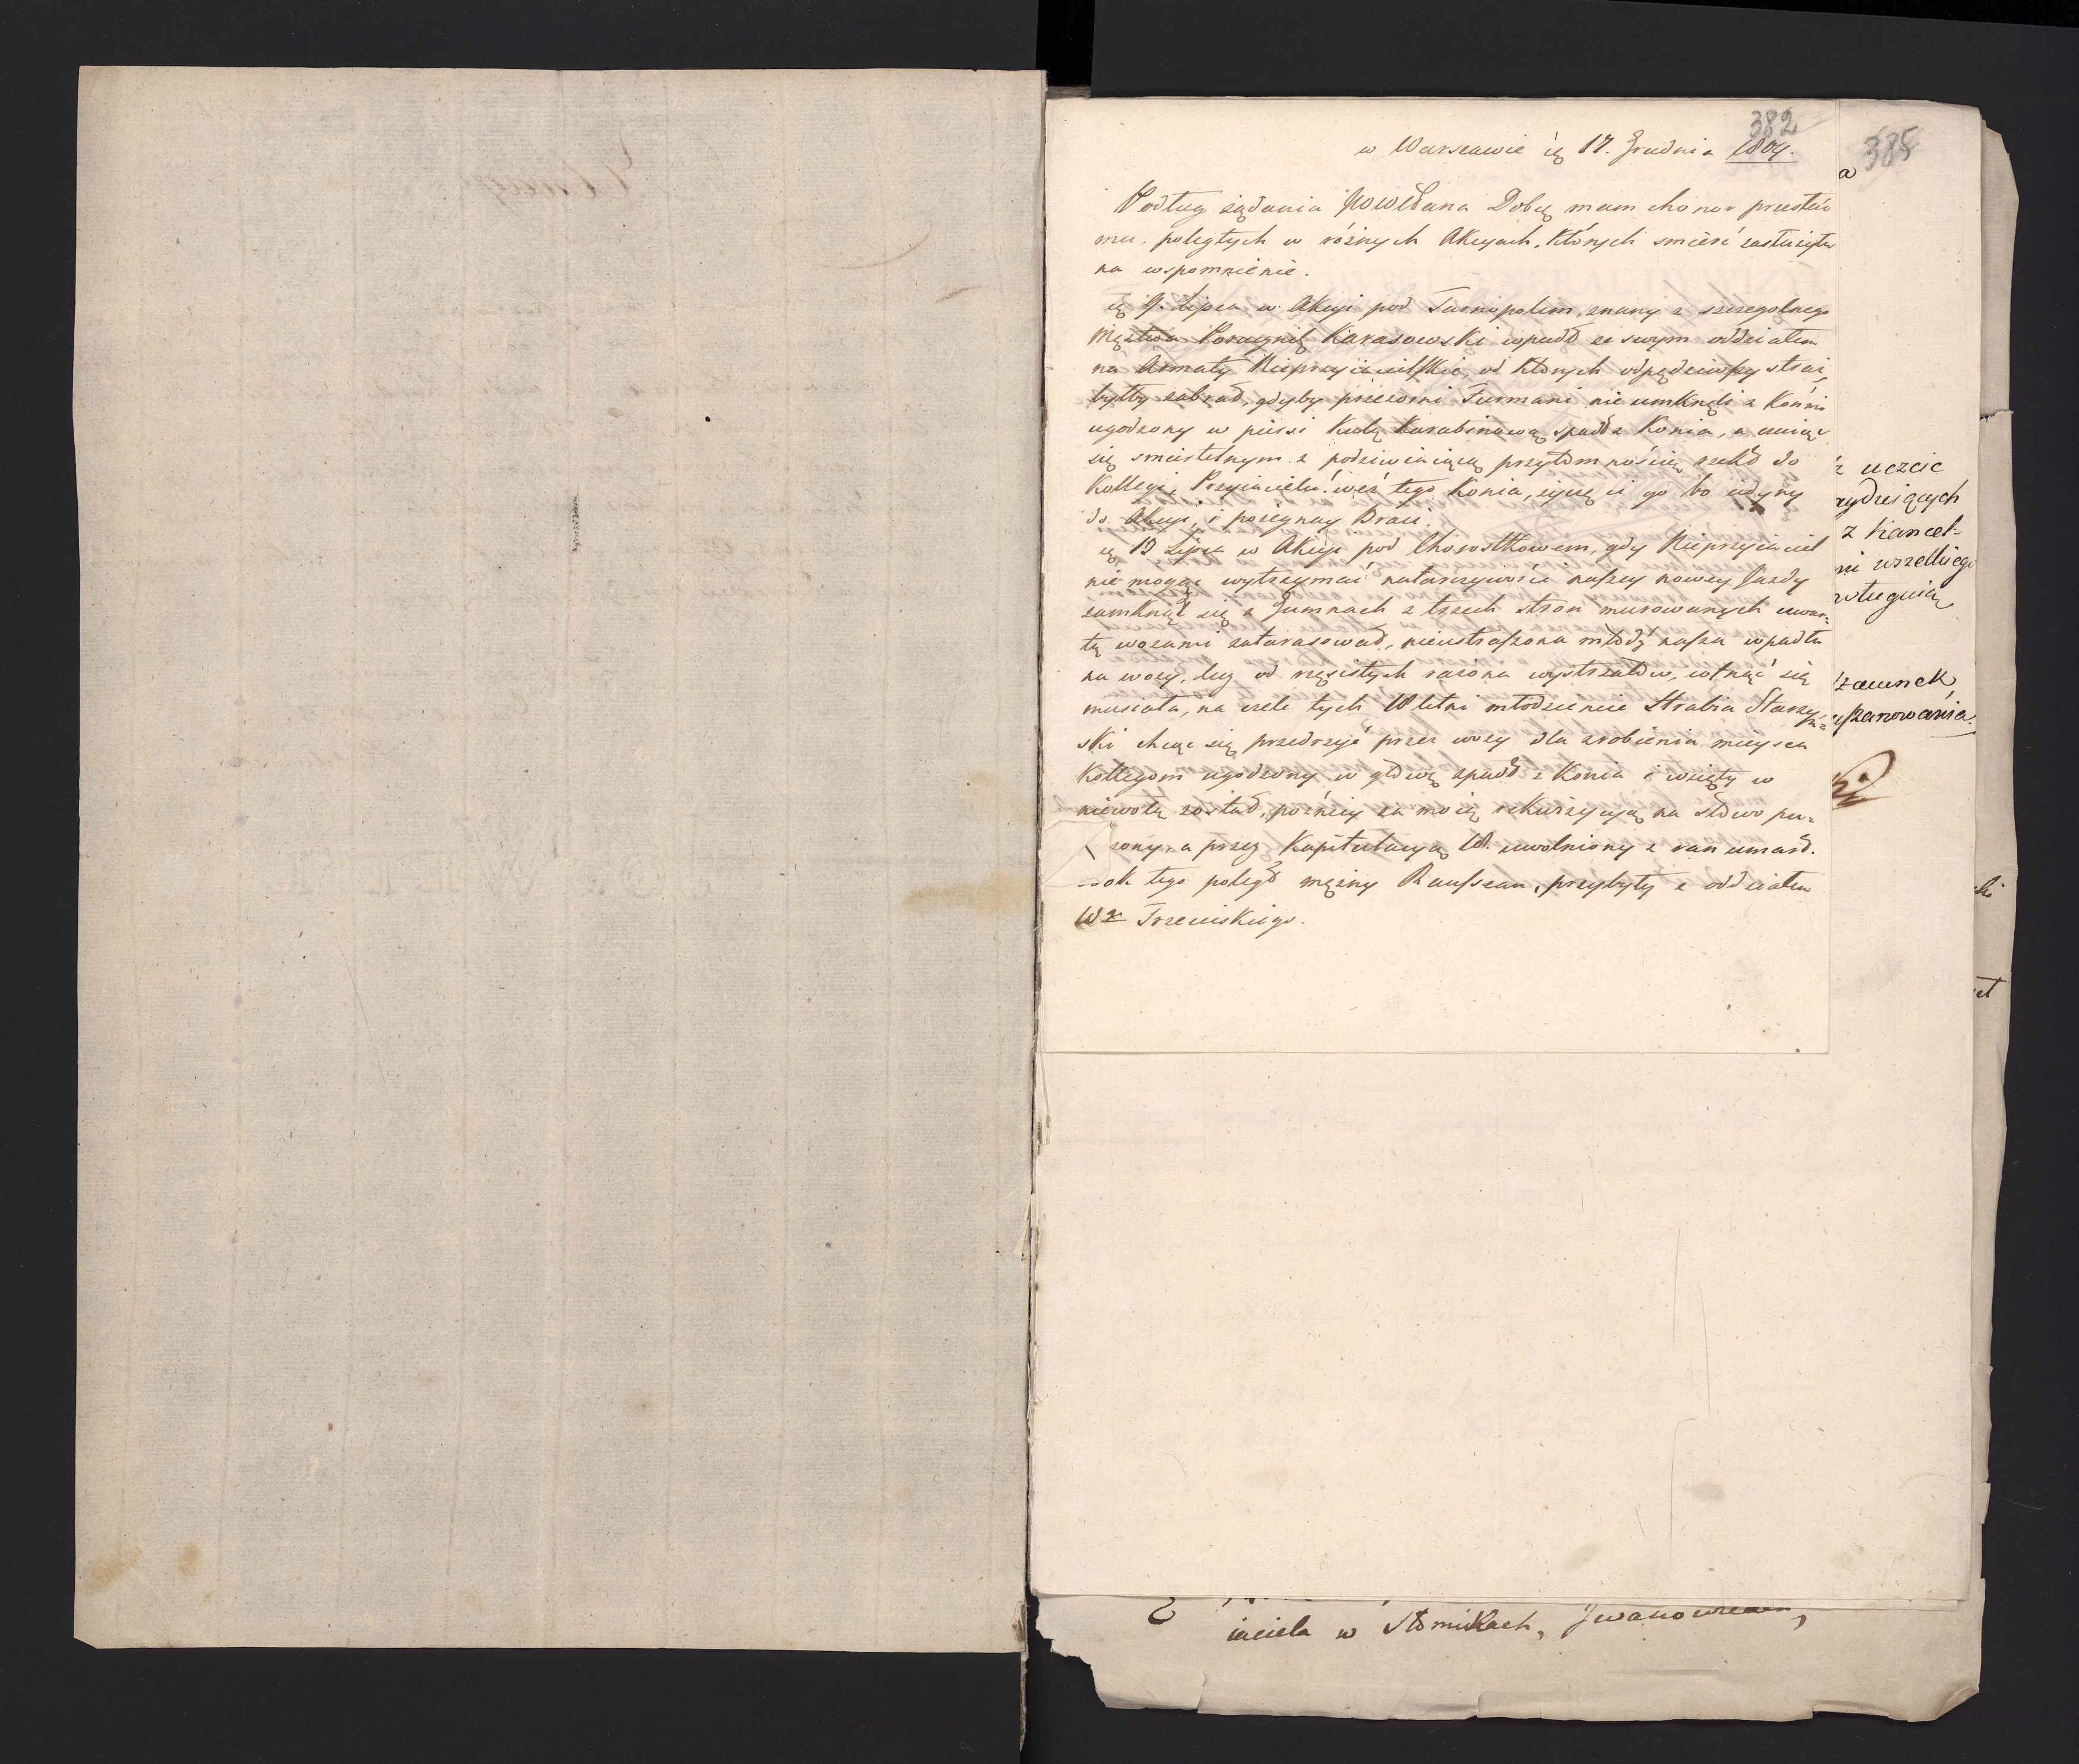 382
385
w Warszawie d. 17. Grudnia 1809.
Podług żądania JWWPana Dobę mam chonor przesłać
mu. poległych w różnych Akcyach, których smierć zasłużyła
na wspomnienie.
d. 9. Lipca w Akcyi pod Tarnopolem, znany z szczegolnego
Męstwa Porucznik Karasowski wpadł ze swym oddziałem
na Armaty Nieprzyiacielskie, od których odpędziwszy straż,
byłby zabrał, gdyby przezorni Furmani nie umknęli z Końmi
ugodzony w piersi kulą karabinową spadł z Konia, a czuiąc
się smiertelnym z podziwiaiącą przytomnością rzekł do
Kollegi, Przyiacielu! weź tego Konia, życzę ci go bo iedyny
do Akcyi, i pożegnay Braci.
d. 13 Lipca w Akcyi pod Chorostkowem, gdy Nieprzyiaciel
nie mogąc wytrzymać natarczywości naszey nowey Jazdy
zamknął się w Gumnach z trzech stron murowanych czwar-
tą wozami zatarasował, nieustraszona młodź nasza wpadła
na wozy, lecz od rzęsistych rażona wystrzałów, cofnąć się
musiała, na czele tych 18 letni młodzieniec Hrabia Starzyń-
ski chcąc się przedrzyć przez wozy dla zrobienia mieysca
Kollegom ugodzony w głowę spadł z Konia i wzięty w
niewolą został, poźniey za moią rekwizycyą na słowo pu-
szony, a przez Kapitulacyą uwolniony z ran umarł.
ok tego poległ mężny Rausseau, przybyły z oddziałem
Wo Trzecinskiego.
a
z uczcie
rydzieiących
z Kancel-
ni wszelkiego
ługuią
zacunek
uszanowania.
et
iaciela w Słomnikach,